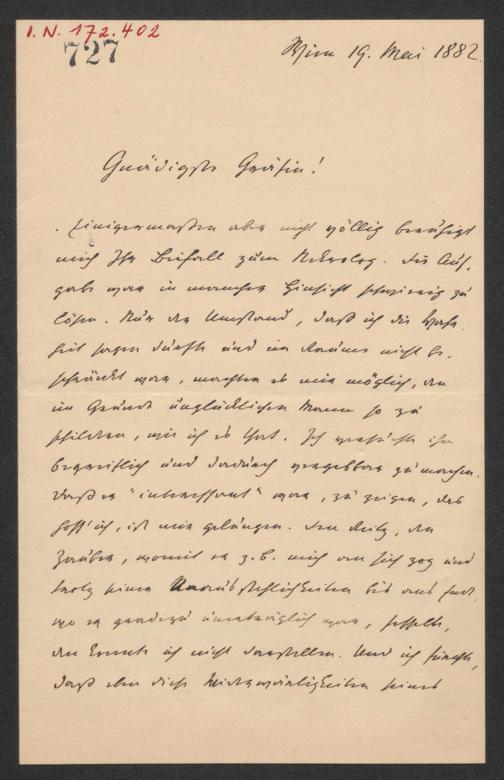 I. N. 172.402
727
Wien 19. Mai 1882.
Gnädigste Gräfin!
Einigermaßen aber nicht völlig beruhigt
mich Ihr Beifall zum Nekrolog. Die Auf-
gabe war in mancher Hinsicht schwierig zu
lösen. Nur der Umstand, daß ich die Wahr-
heit sagen durfte und im Raume nicht be-
schränkt war, machten es mir möglich, den
im Grunde unglücklichen Mann so zu
schildern, wie ich es that. Ich versuchte ihn
begreiflich und dadurch vergebbar zu machen.
Daß er "interessant" war, zu zeigen, das
hoff' ich, ist mir gelungen. Den Reitz, den
Zauber, womit er z. B. mich an sich zog und
trotz seiner bis ans Ende,
wo er geradezu unerträglich war, fesselte,
den konnte ich nicht darstellen. Und ich fürchte,
daß eben diese Widerwärtigkeiten seines